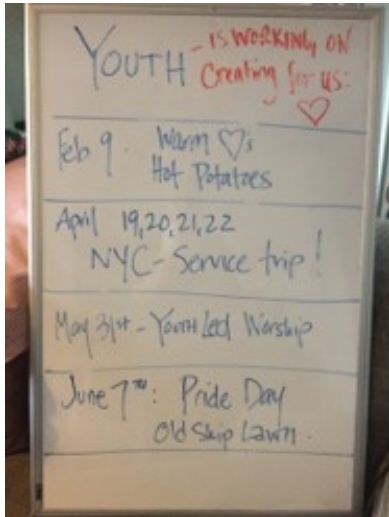 YOUTH - IS WORKING ON
Creating for us:
♡
Feb 9. Warm ♡'s
Hot Potatoes
April 19,20,21,22
NYC - Service trip!
May 31st - Youth Led Worship
June 7TH: Pride Day
Old Ship Lawn.